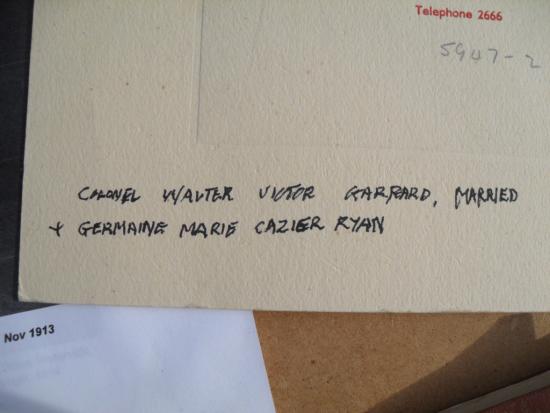 Telephone 2666
5947-2
COLONEL WALTER VICTOR GARRARD, MARRIED
+ GERMAINE MARIE CAZIER RYAN
Nov 1913